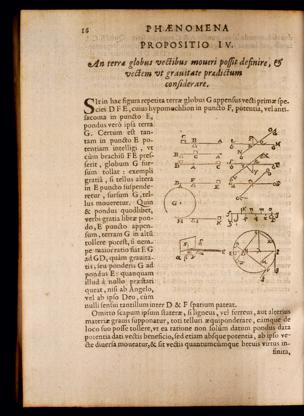 16
PHÆNOMENA
PROPOSITIO IV.
An terræ globus vectibus moueri possit definire, &
vectem vt grauitate prædictum
considerare.
Sit in hac figura repetita terræ globus G appensus vecti primæ spe-
cies D F E, cuius hypomochlion in puncto F, potentia, vel anti-
sacoma in puncto E,
pondus verò ipsa terra
G. Certum est tan-
tam in puncto E po-
tentiam intelligi, vt
cùm brachiũ FE pres-
serit, globum G sur-
sum tollat: exempli
gratiâ, si tellus altera
in E puncto suspende-
retur, sursum G, tel-
lus moueretur. Quin
& pondus quodlibet,
verbi gratia libræ pon-
do, E puncto appen-
sum, terram G in altũ
tollere potest, si nem-
pe maior ratio fiat E G
ad GD, quàm grauita-
tis, seu ponderis G ad
pondus E: quanquam
illud à nullo præstari
queat, nisi ab Angelo,
vel ab ipso Deo, cùm
nulli sensui tantillum inter D & F spatium pateat.
Omitto scapum ipsum stateræ, si ligneus, vel ferreus, aut alterius
materiæ grauis supponatur, toti tellũri æquiponderare, eamque de
loco suo posse tollere, vt ea ratione non solùm datum pondus data
potentia dati vectis beneficio, sed etiam absque potentia, ab ipso ve-
cte diuersa moueatur, & sit vectis quantumcumque breuis virtus in-
finita,